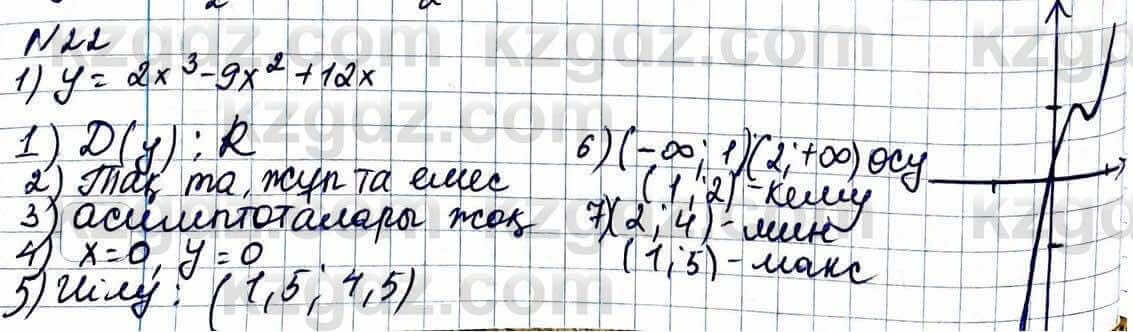 N22
1) y = 2x³ - 9x² + 12x
1) D(y) : R
2) Тақ та, жұп та емес
3) асимптоталары жоқ
4) x=0, y=0
5) Иілу: (1,5; 4,5)
6) (-∞; 1)(2; +∞) өсу
(1; 2) - кему
7) (2; 4) - мин
(1; 5) - макс
kzgdz.com